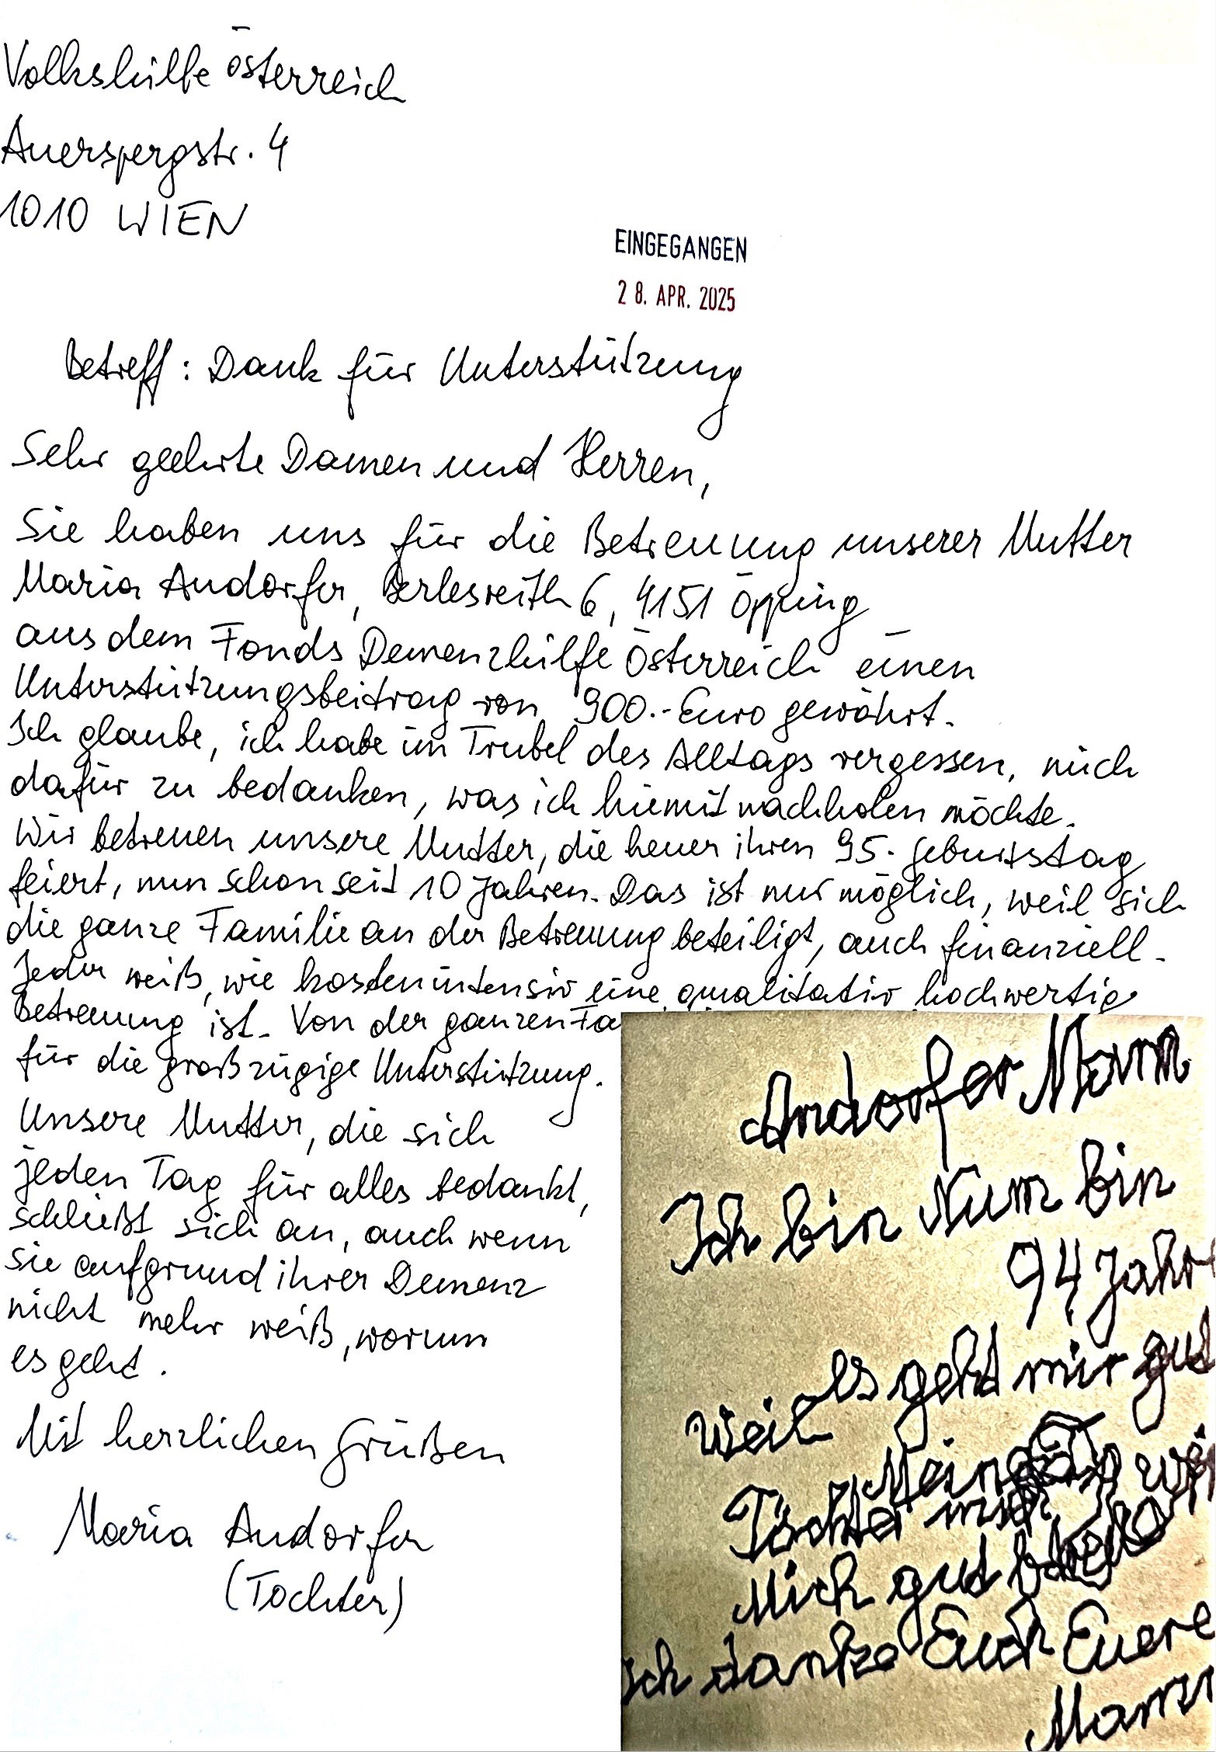 Volkshilfe Österreich
Auerspergstr. 4
1010 WIEN
EINGEGANGEN
28. APR. 2025
Betreff: Dank für Unterstützung
Sehr geehrte Damen und Herren,
Sie haben uns für die Betreuung unserer Mutter
Maria Andorfer, Berlesreith 6, 4151 Öpping
aus dem Fonds Demenzhilfe Österreich einen
Unterstützungsbeitrag von 900.- Euro gewährt.
Ich glaube, ich habe im Trubel des Alltags vergessen, mich
dafür zu bedanken, was ich hiemit nachholen möchte.
Wir betreuen unsere Mutter, die heuer ihren 95. Geburtstag
feiert, nun schon seit 10 Jahren. Das ist nur möglich, weil sich
die ganze Familie an der Betreuung beteiligt, auch finanziell.
Jeder weiß, wie kostenintensiv eine qualitativ hochwertige
Betreuung ist. Von der ganzen Fa
für die großzügige Unterstützung.
Unsere Mutter, die sich
jeden Tag für alles bedankt,
schließt sich an, auch wenn
sie aufgrund ihrer Demenz
nicht mehr weiß, worum
es geht.
Mit herzlichen Grüßen
Maria Andorfer
(Tochter)
Andorfer
Ich bin Num bin
94 Jahre
es geht mir gut
weil
Töchter
Mich gut
ich danke Euch Euere
Mama